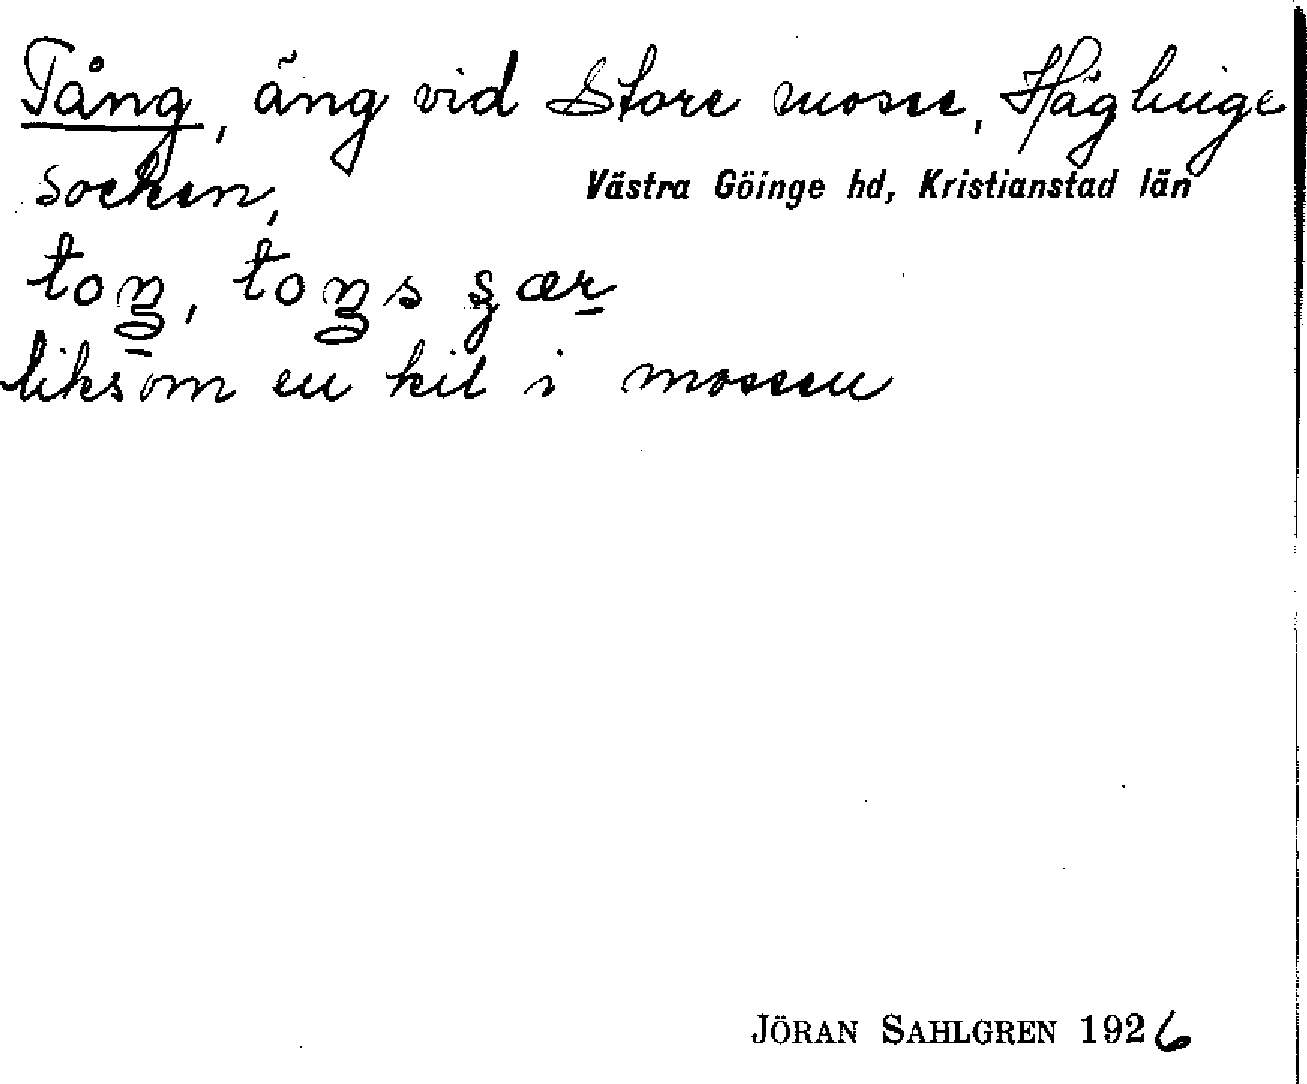 Tång, äng vid Store mosse, Häglinge
socken, Västra Göinge hd, Kristianstad län
toŋ, toŋs ʂær
liksom en kil i mossen
JÖRAN SAHLGREN 1926